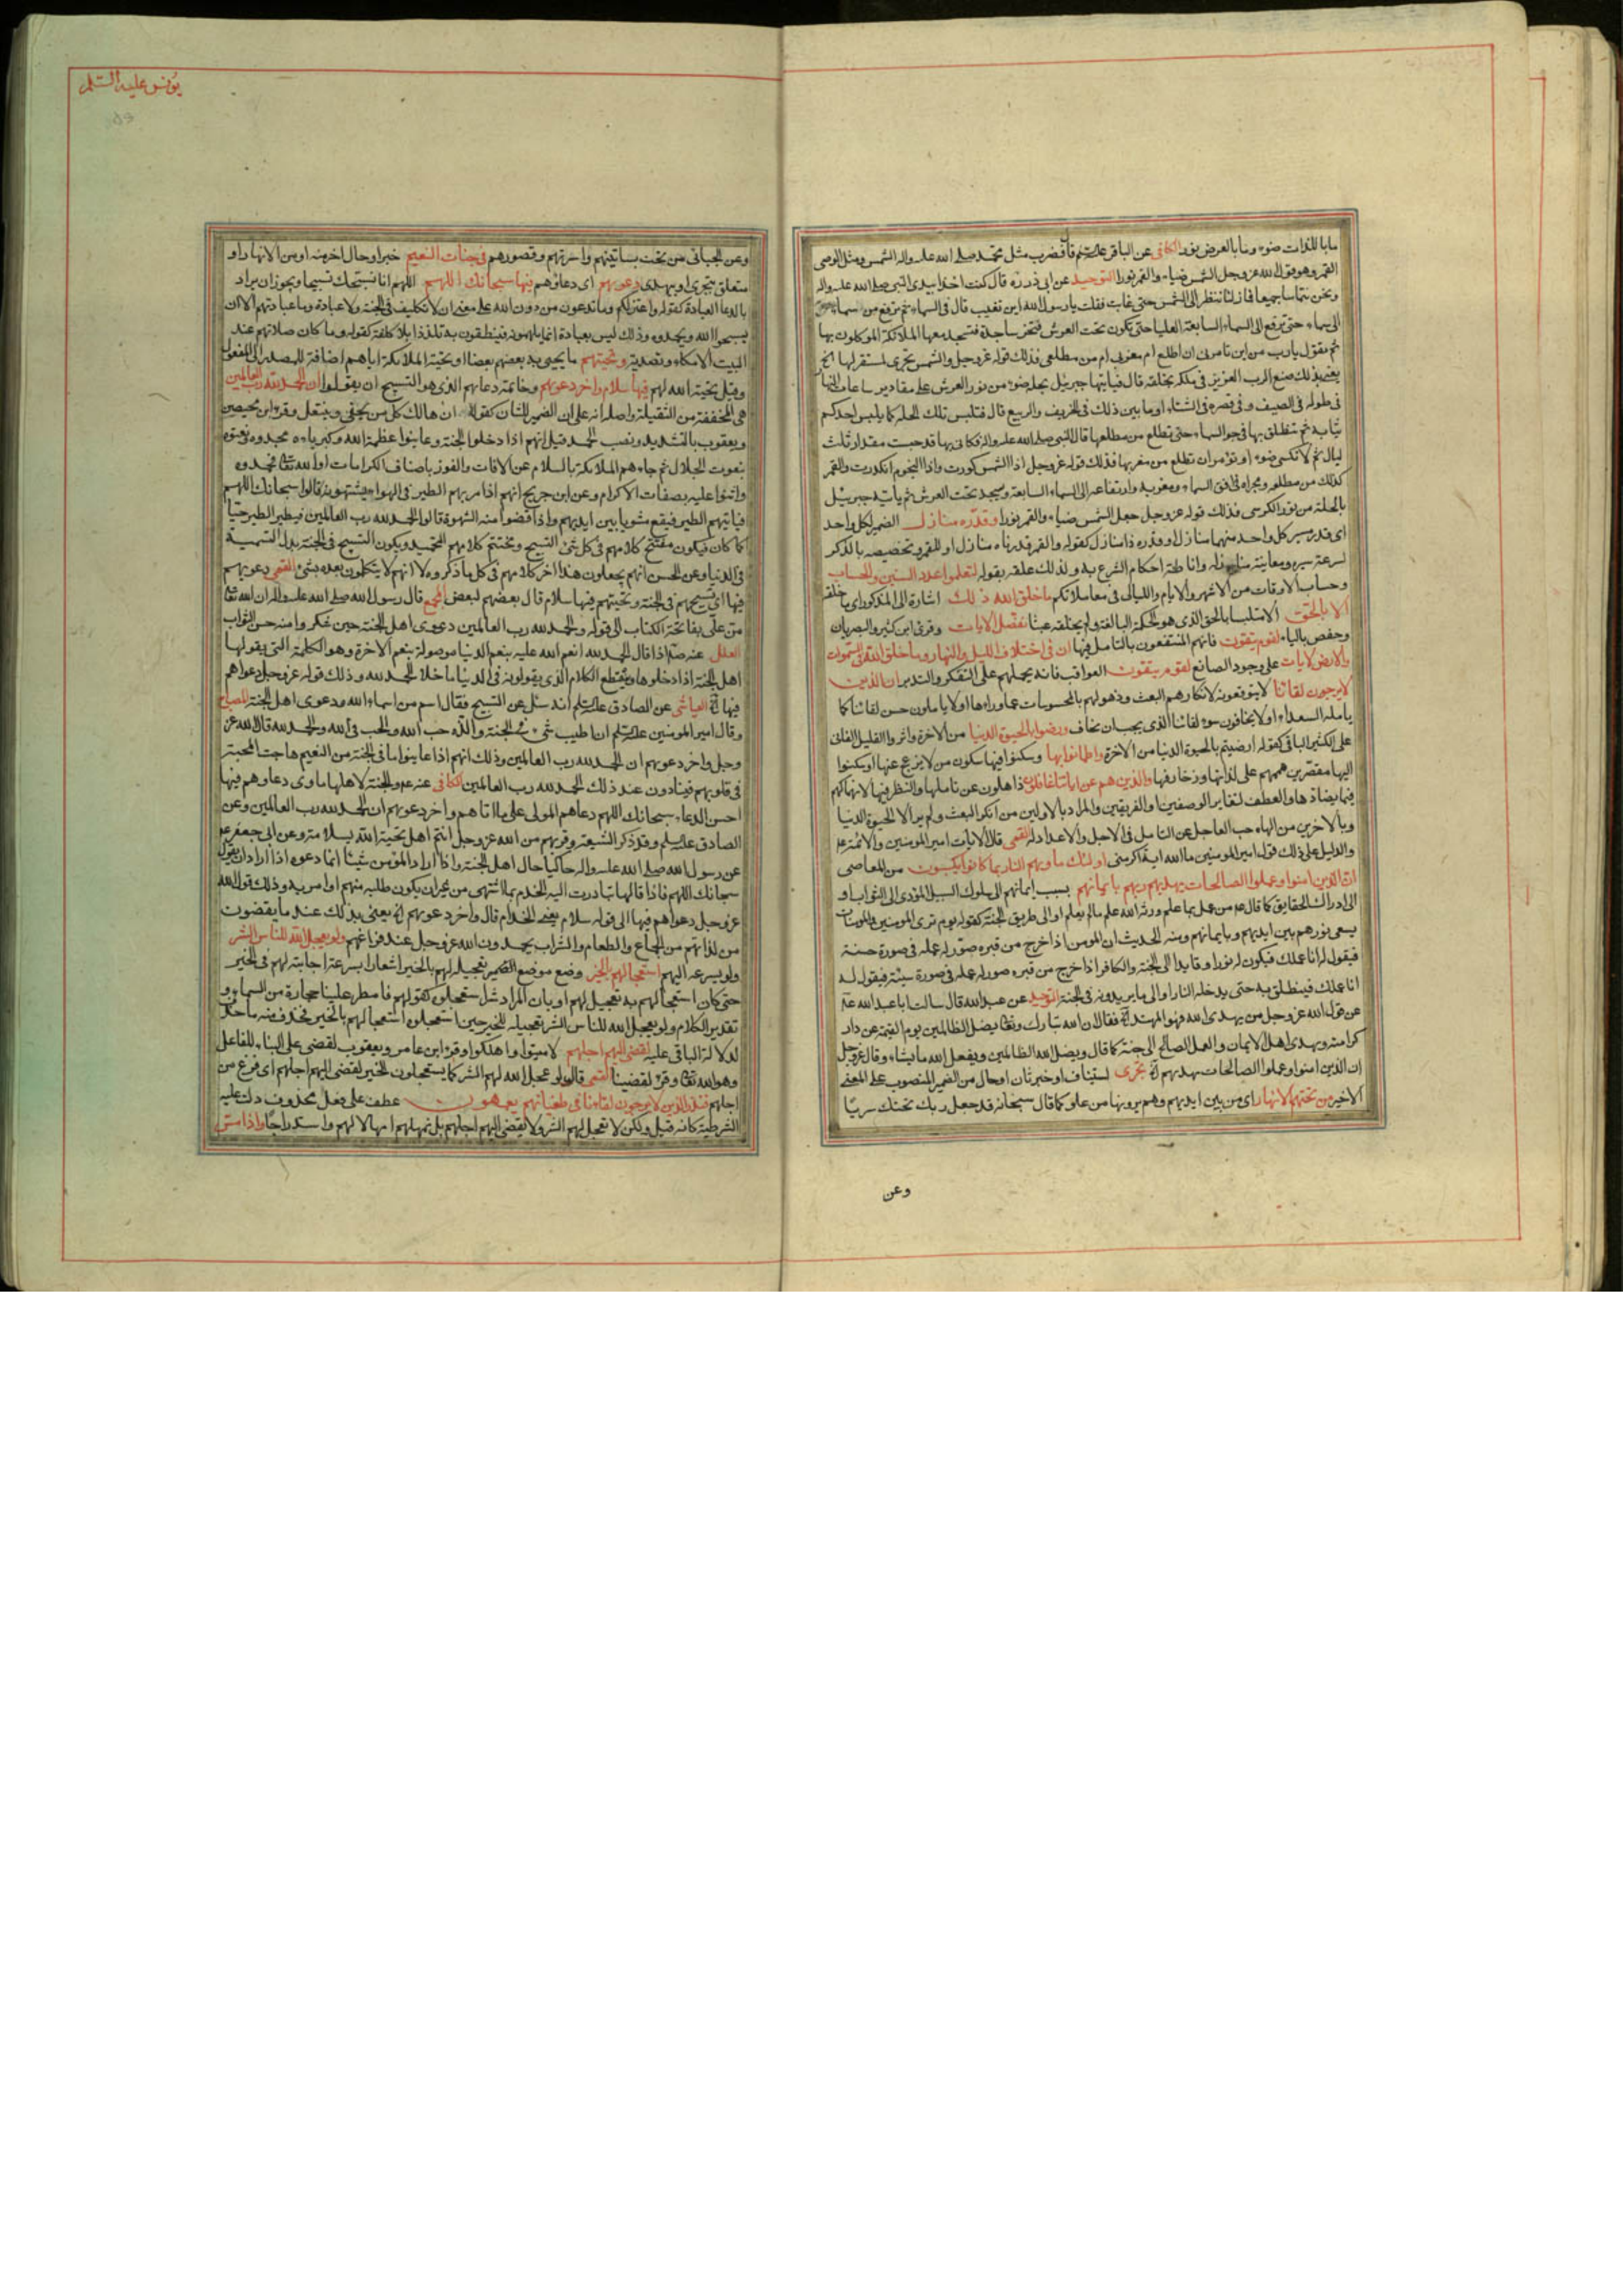 ما بالذات ضوء وما بالعرض نور الكافى عن الباقر عليه السلام قال فضرب مثل محمد صلى الله عليه واله الشمس ومثل الوصى
القمر وهو قول الله عز وجل جعل الشمس ضياء والقمر نورا التوحيد عن ابى ذر ره قال كنت اخذا بيد النبى صلى الله عليه واله
ونحن نتماشا جميعا فما زلنا ننظر الى الشمس حتى غابت فقلت يا رسول الله اين تغيب قال فى السماء ثم ترفع من سماء
الى سماء حتى ترفع الى السماء السابعة العليا حتى تكون تحت العرش فتخر ساجدة فتسجد معها الملائكة الموكلون بها
ثم تقول يا رب من اين تامرنى ان اطلع ام من مغربى ام من مطلعى فذلك قوله عز وجل والشمس تجرى لمستقر لها الخ
يعنى بذلك صنع الرب العزيز فى ملكه بخلقه قال فياتيها جبرئيل بحلة ضوء من نور العرش على مقادير ساعات النهار
فى طوله فى الصيف وفى قصره فى الشتاء او ما بين ذلك فى الخريف والربيع قال فتلبس تلك الحلة كما يلبس احدكم
ثيابه ثم تنطلق بها فى جو السماء حتى تطلع من مطلعها قال النبى صلى الله عليه واله فكانى بها قد حبست مقدار ثلث
ليال ثم لا تكسى ضوء او تؤمر ان تطلع من مغربها فذلك قوله عز وجل اذا الشمس كورت واذا النجوم انكدرت والقمر
كذلك من مطلعه ومجراه فى افق السماء ومغربه وارتفاعه الى السماء السابعة ويسجد تحت العرش ثم ياتيه جبرئيل
بالحلة من نور الكرسى فذلك قوله عز وجل جعل الشمس ضياء والقمر نورا وقدره منازل الضمير لكل واحد
اى قدر سير كل واحد منهما منازل او قدره ذا منازل كقوله والقمر قدرناه منازل او للقمر وتخصيصه بالذكر
لسرعة سيره ومعاينة منازله واناطة احكام الشرع به ولذلك علقه بقوله لتعلموا عدد السنين والحساب
وحساب الاوقات من الاشهر والايام والليالى فى معاملاتكم ما خلق الله ذلك اشارة الى المذكور اى ما خلقه
الا بالحق الا متلبسا بالحق الذى هو الحكمة البالغة ولم يخلقه عبثا نفصل الايات وقرئ ابن كثير والبصريان
وحفص بالياء لقوم يتقون فانهم المنتفعون بالتامل فيها ان فى اختلاف الليل والنهار وما خلق الله فى السموات
والارض لايات على وجود الصانع لقوم يتقون العواقب فانه يحملهم على التفكر والتدبر ان الذين
لا يرجون لقائنا لا يتوقعونه لانكارهم البعث وذهولهم بالمحسوسات عما وراءها او لا ياملون حسن لقائنا كما
يامله السعداء او لا يخافون سوء لقائنا الذى يجب ان يخاف ورضوا بالحيوة الدنيا من الاخرة واثروا القليل الفانى
على الكثير الباقى كقوله ارضيتم بالحيوة الدنيا من الاخرة واطمانوا بها وسكنوا فيها سكون من لا يزعج عنها او سكنوا
اليها مقصرين هممهم على لذاتها وزخارفها والذين هم عن اياتنا غافلون ذاهلون عن تاملها والنظر فيها لانهماكهم
فيما يضادها والعطف لتغاير الوصفين او الفريقين والمراد بالاولين من انكر البعث ولم ير الا الحيوة الدنيا
وبالاخرين من الهاه حب العاجل عن التامل فى الاجل والاعداد له القمى قال الايات امير المومنين والائمة ع
والدليل على ذلك قول امير المومنين ما لله اية اكبر منى اولئك ماويهم النار بما كانوا يكسبون من المعاصى
ان الذين امنوا وعملوا الصالحات يهديهم ربهم بايمانهم بسبب ايمانهم الى سلوك السبيل المؤدى الى الثواب او
الى ادراك الحقايق كما قال ع من عمل بما علم ورثه الله علم ما لم يعلم او الى طريق الجنة كقوله يوم ترى المومنين والمومنات
يسعى نورهم بين ايديهم وبايمانهم ومنه الحديث ان المومن اذا خرج من قبره صور له عمله فى صورة حسنة
فيقول له انا عملك فيكون له نورا وقايدا الى الجنة والكافر اذا خرج من قبره صور له عمله فى صورة سيئة فيقول له
انا عملك فينطلق به حتى يدخله النار او الى ما يريدونه فى الجنة التوحيد عن عبد الله قال سالت ابا عبد الله ع
عن قول الله عز وجل من يهدى الله فهو المهتد الاية فقال ان الله تبارك وتعالى يضل الظالمين يوم القيمة عن دار
كرامته ويهدى اهل الايمان والعمل الصالح الى جنته كما قال ويضل الله الظالمين ويفعل الله ما يشاء وقال عز وجل
ان الذين امنوا وعملوا الصالحات يهديهم الاية تجرى استيناف او خبر ثان او حال من الضمير المنصوب على المعنى
الاخير من تحتهم الانهار اى من بين ايديهم وهم يرونها من علو كما قال سبحانه قد جعل ربك تحتك سريا
وعن
يونس عليه السلم
وعن الجبائى من تحت بساتينهم واسرتهم وقصورهم فى جنات النعيم خبر او حال اخر منه او من الانهار او
متعلق بتجرى او بيهدى دعويهم اى دعاؤهم فيها سبحانك اللهم اللهم انا نسبحك تسبيحا ويجوز ان يراد
بالدعا العبادة كقوله واعتزلكم وما تدعون من دون الله على معنى ان لا تكليف فى الجنة ولا عبادة وما عبادتهم الا ان
يسبحوا الله ويحمدوه وذلك ليس بعبادة انما يلهمونه فينطقون به تلذذا بلا كلفة كقوله وما كان صلاتهم عند
البيت الا مكاء وتصدية وتحيتهم ما يحيى به بعضهم بعضا او تحية الملائكة اياهم اضافة للمصدر الى المفعول
وقيل تحية الله لهم فيها سلام واخر دعويهم وخاتمة دعائهم الذى هو التسبيح ان يقولوا ان الحمد لله رب العالمين
هى المخففة من الثقيلة واصله انه على ان الضمير للشان كقوله ان هالك كل من يحفى وينتعل وقرء ابن محيصن
ويعقوب بالتشديد ونصب الحمد قيل انهم اذا دخلوا الجنة وعاينوا عظمة الله وكبرياءه مجدوه ونعتوه
بنعوت الجلال ثم جاءهم الملائكة بالسلام عن الافات والفوز باصناف الكرامات او الله تعالى فحمدوه
واثنوا عليه بصفات الاكرام وعن ابن جريح انهم اذا مر بهم الطير فى الهواء يشتهونه قالوا سبحانك اللهم
فياتيهم الطير فيقع مشويا بين ايديهم واذا قضوا منه الشهوة قالوا الحمد لله رب العالمين فيطير الطير حيا
كما كان فيكون مفتتح كلامهم فى كل شئ التسبيح ومختتم كلامهم التحميد ويكون التسبيح فى الجنة بدل التسمية
فى الدنيا وعن الحسن انهم يجعلون هذا اخر كلامهم فى كل ما ذكروه لا انهم لا يتكلمون بعده بشئ القمى دعويهم
فيها اى تسبيحهم فى الجنة وتحيتهم فيها سلام قال بعضهم لبعض المجمع قال رسول الله صلى الله عليه واله ان الله تعالى
من على بفاتحة الكتاب الى قوله والحمد لله رب العالمين دعوى اهل الجنة حين شكروا منه حسن الثواب
العلل عنه ص اذا قال الحمد لله انعم الله عليه بنعم الدنيا موصولة بنعم الاخرة وهو الكلمة التى يقولها
اهل الجنة اذا دخلوها وينقطع الكلام الذى يقولونه فى الدنيا ما خلا الحمد لله وذلك قوله عز وجل دعواهم
فيها الاية العياشى عن الصادق عليه السلام انه سئل عن التسبيح فقال اسم من اسماء الله ودعوى اهل الجنة المصباح
وقال امير المومنين عليه السلام ان اطيب شئ فى الجنة والذه حب الله والحب فى الله والحمد لله قال الله عز
وجل واخر دعويهم ان الحمد لله رب العالمين وذلك انهم اذا عاينوا ما فى الجنة من النعيم هاجت المحبة
فى قلوبهم فينادون عند ذلك الحمد لله رب العالمين الكافى عنه ع والجنة لاهلها ماوى دعاوهم فيها
احسن الدعاء سبحانك اللهم دعاهم المولى على ما اتاهم واخر دعويهم ان الحمد لله رب العالمين وعن
الصادق عليه السلم وقد ذكر الشيعة وقربهم من الله عز وجل انتم اهل تحية الله بسلامته وعن ابى جعفر ع
عن رسول الله صلى الله عليه واله حاكيا حال اهل الجنة واذا اراد المؤمن شيئا انما دعوه اذا اراد ان يقول
سبحانك اللهم فاذا قالها تبادرت اليه الخدم بما اشتهى من غير ان يكون طلبه منهم او امر به وذلك قول الله
عز وجل دعواهم فيها الى قوله سلام يعنى الخدام قال واخر دعويهم الاية يعنى بذلك عند ما يقضون
من لذاتهم من الجماع والطعام والشراب يحمدون الله عز وجل عند فراغهم ولو يعجل الله للناس الشر
ولو يسرعه اليهم استعجالهم بالخير وضع موضع الضمير تعجيله لهم بالخير اشعارا بسرعة اجابته لهم فى الخير
حتى كان استعجالهم به تعجيل لهم او بان المراد شر استعجلوه كقولهم فامطر علينا حجارة من السماء و
تقدير الكلام ولو يعجل الله للناس الشر تعجيله للخير حين استعجلوه استعجالهم بالخير فحذف منه ما حذف
لدلالة الباقى عليه لقضى اليهم اجلهم لاميتوا واهلكوا وقرء ابن عامر ويعقوب لقضى على البناء للفاعل
وهو الله تعالى وقرئ لقضينا القمى قال ولو عجل الله لهم الشر كما يستعجلون الخير لقضى اليهم اجلهم اى فرغ من
اجلهم فنذر الذين لا يرجون لقاءنا فى طغيانهم يعمهون عطف على فعل محذوف دلت عليه
الشرطية كانه قيل ولكن لا نعجل لهم الشر ولا نقضى اليهم اجلهم بل نمهلهم امهالا لهم واستدراجا واذا مس